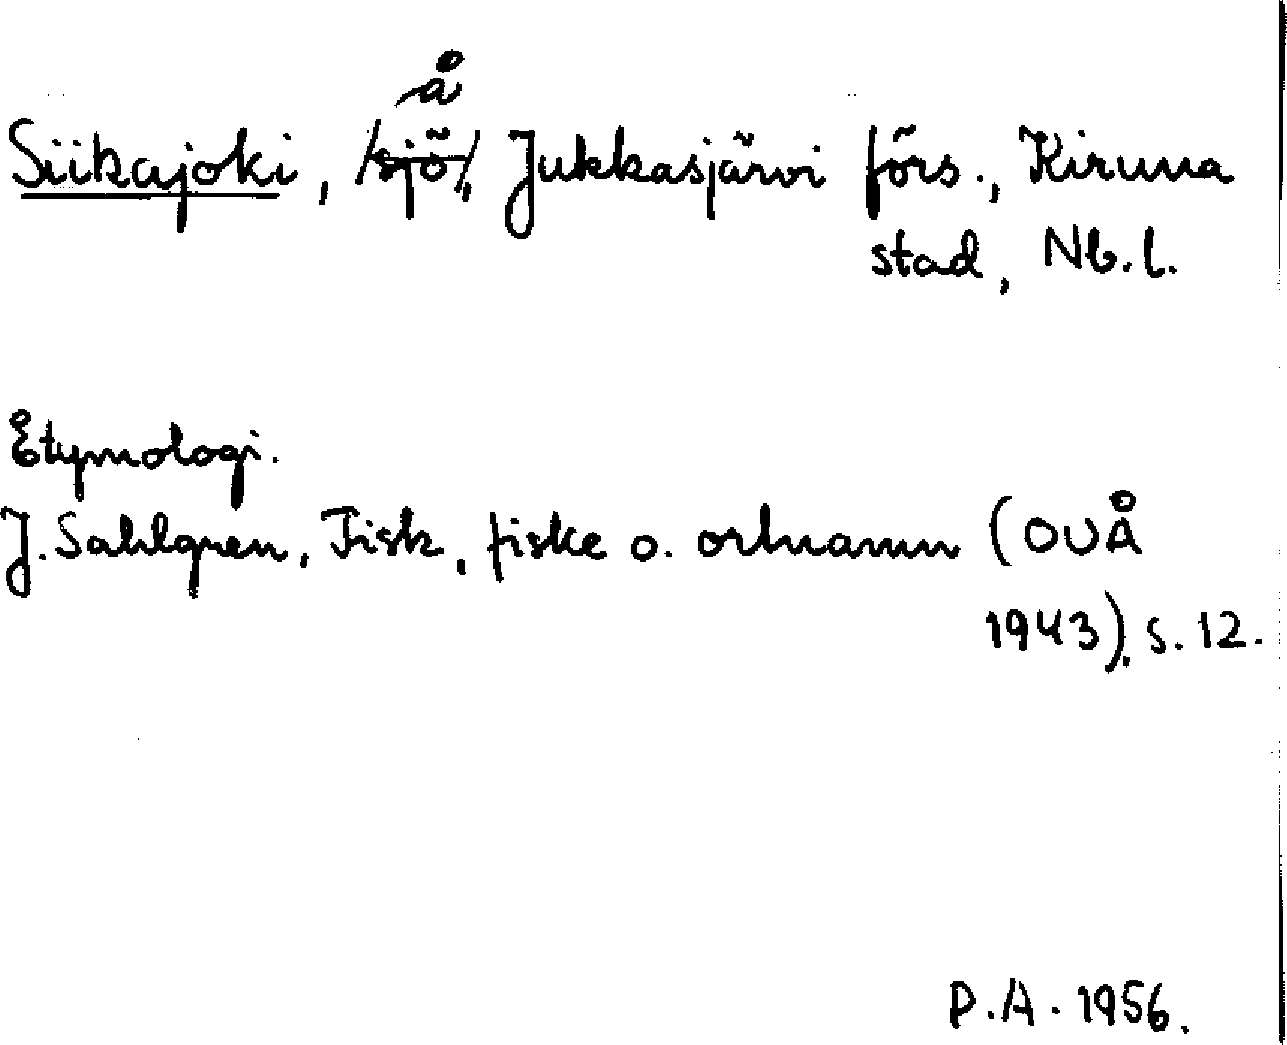 å
Siikajoki, /sjö/, Jukkasjärvi förs., Kiruna
stad, Nb.l.
Etymologi.
J. Sahlgren, Fisk, fiske o. ortnamn (OUÅ
1943), s. 12.
P.A. 1956.